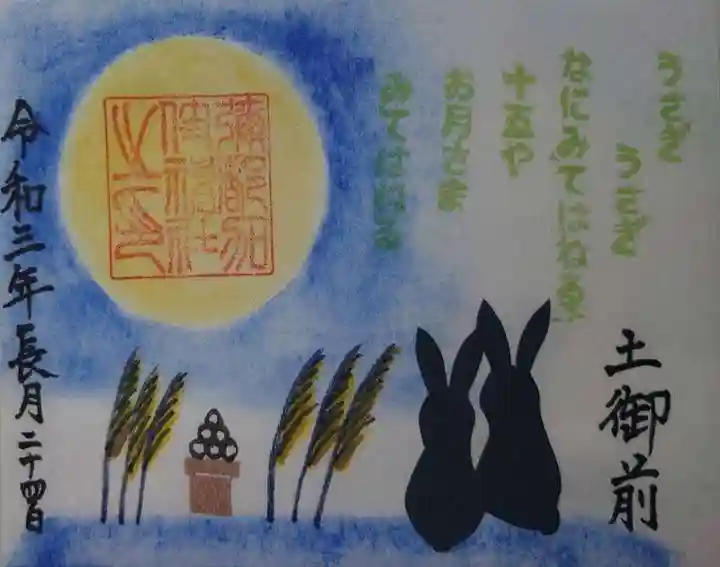 うさぎ
うさぎ
なにみてはねる
十五や
お月さま
みてはねる
土御前
彌都加
伎神社
之印
令和三年長月二十四日